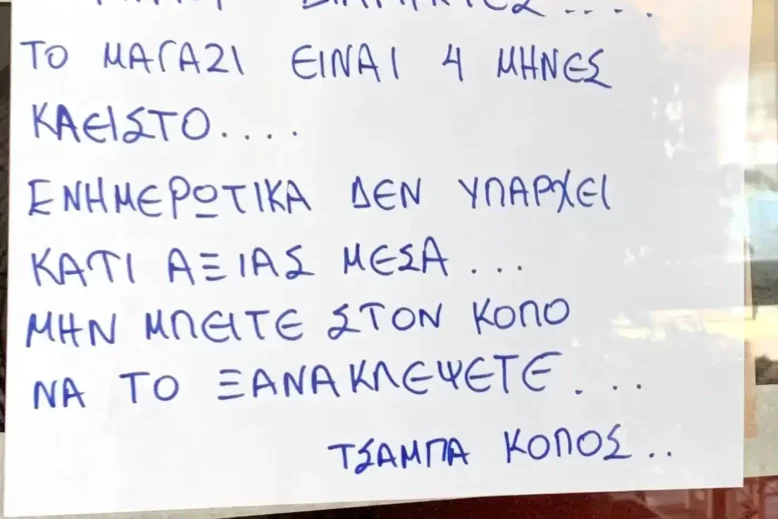 ΤΟ ΜΑΓΑΖΙ ΕΙΝΑΙ 4 ΜΗΝΕΣ
ΚΛΕΙΣΤΟ....
ΕΝΗΜΕΡΩΤΙΚΑ ΔΕΝ ΥΠΑΡΧΕΙ
ΚΑΤΙ ΑΞΙΑΣ ΜΕΣΑ...
ΜΗΝ ΜΠΕΙΤΕ ΣΤΟΝ ΚΟΠΟ
ΝΑ ΤΟ ΞΑΝΑΚΛΕΨΕΤΕ...
ΤΣΑΜΠΑ ΚΟΠΟΣ..